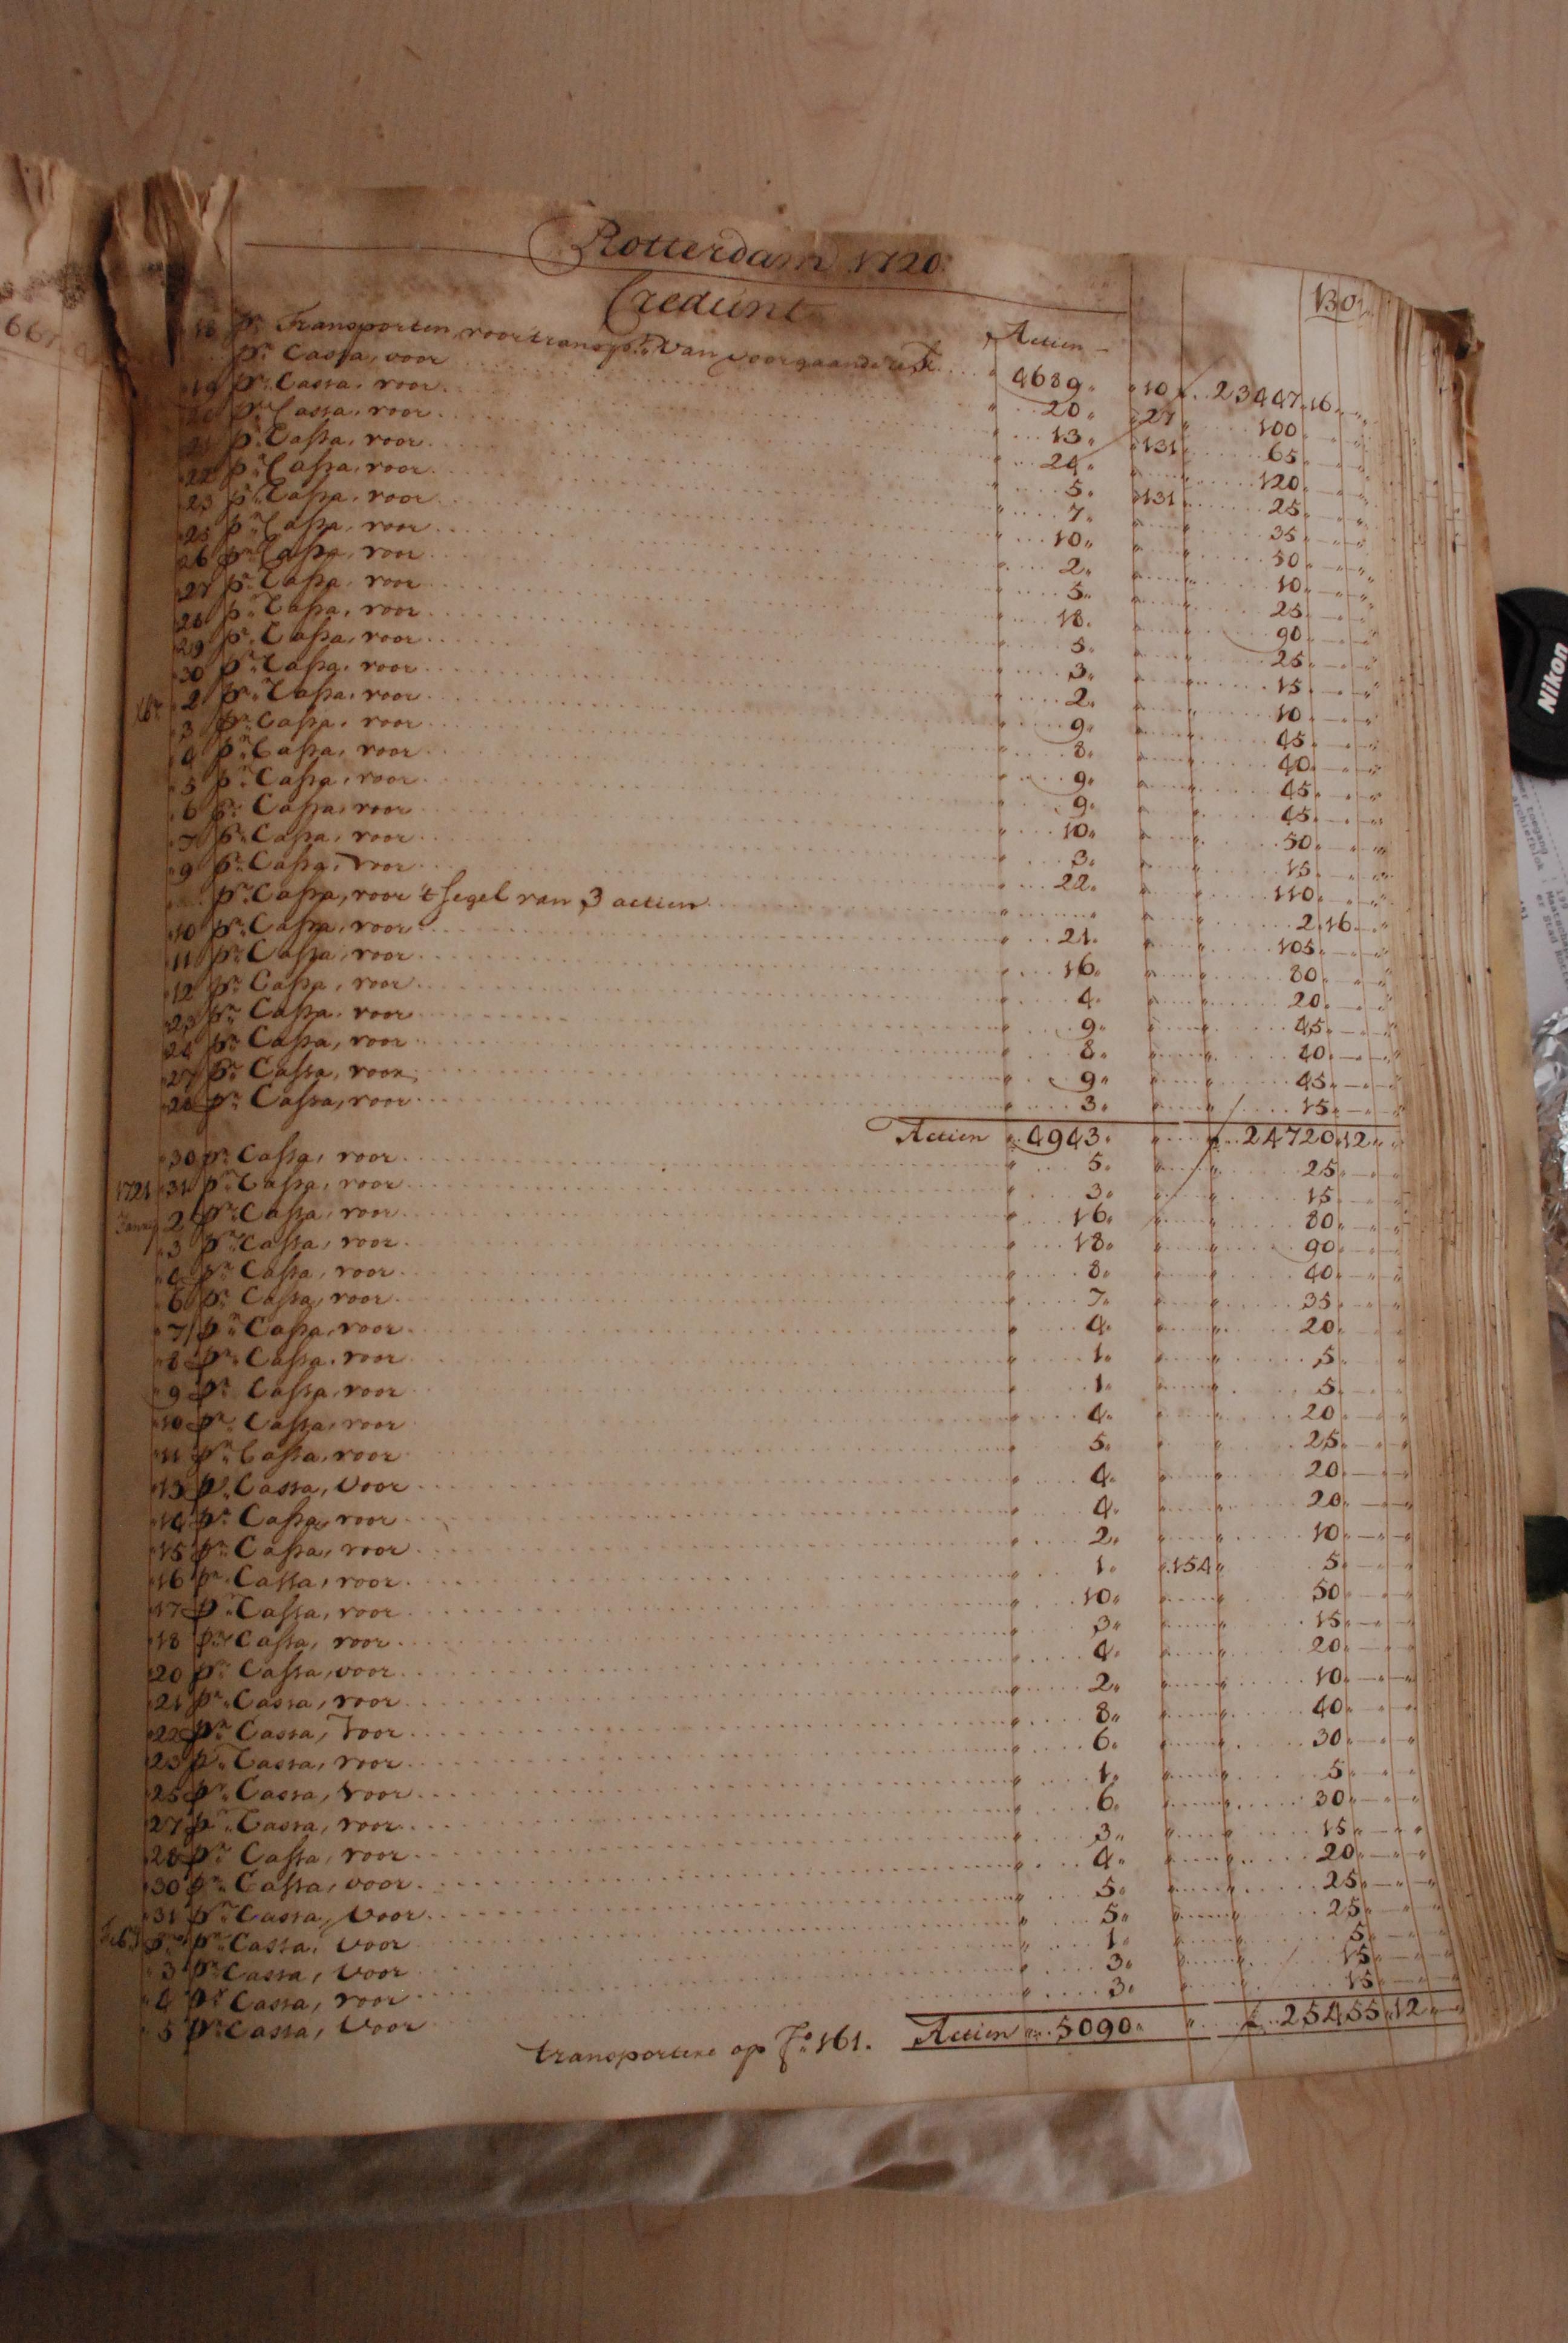 Rotterdam 1720.
130
Credunt
Actien
18 pr. Transporten, voor transpt. van voorgaande 4689 10 £ 23447.16
pr. Cassa, voor 20 27 100
19 pr. Cassa, voor 13 131 65
20 pr. Cassa, voor 24 120
21 pr. Cassa, voor 5 131 25
22 pr. Cassa, voor 7 35
23 pr. Cassa, voor 10 50
25 pr. Cassa, voor 2 10
26 pr. Cassa, voor 5 25
27 pr. Cassa, voor 18 90
28 pr. Cassa, voor 5 25
29 pr. Cassa, voor 3 15
30 pr. Cassa, voor 2 10
Xbr. 2 pr. Cassa, voor 9 45
3 pr. Cassa, voor 8 40
4 pr. Cassa, voor 9 45
5 pr. Cassa, voor 9 45
6 pr. Cassa, voor 10 50
7 pr. Cassa, voor 3 15
9 pr. Cassa, voor 22 110
pr. Cassa, voor 't segel van 3 actien 2.16
10 pr. Cassa, voor 21 105
11 pr. Cassa, voor 16 80
12 pr. Cassa, voor 4 20
23 pr. Cassa, voor 9 45
24 pr. Cassa, voor 8 40
27 pr. Cassa, voor 9 45
28 pr. Cassa, voor 3 15
Actien 4943 £ 24720.12
30 pr. Cassa, voor 5 25
31 pr. Cassa, voor 3 15
1721 Janry 2 pr. Cassa, voor 16 80
3 pr. Cassa, voor 18 90
4 pr. Cassa, voor 8 40
6 pr. Cassa, voor 7 35
7 pr. Cassa, voor 4 20
8 pr. Cassa, voor 1 5
9 pr. Cassa, voor 1 5
10 pr. Cassa, voor 4 20
11 pr. Cassa, voor 5 25
13 pr. Cassa, voor 4 20
14 pr. Cassa, voor 4 20
15 pr. Cassa, voor 2 10
16 pr. Cassa, voor 1 154 5
17 pr. Cassa, voor 10 50
18 pr. Cassa, voor 3 15
20 pr. Cassa, voor 4 20
21 pr. Cassa, voor 2 10
22 pr. Cassa, voor 8 40
23 pr. Cassa, voor 6 30
25 pr. Cassa, voor 1 5
27 pr. Cassa, voor 6 30
28 pr. Cassa, voor 3 15
30 pr. Cassa, voor 4 20
31 pr. Cassa, voor 5 25
pr. Cassa, voor 5 25
3 pr. Cassa, voor 1 5
4 pr. Cassa, voor 3 15
5 pr. Cassa, voor 3 15
transportere op Fo. 161. Actien 5090 £ 25455.12
Nikon